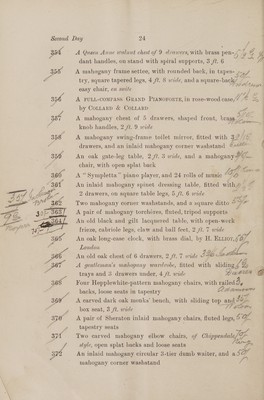 Second Day 24
354 A Queen Anne walnut chest of 9 drawers, with brass pen-
dant handles, on stand with spiral supports, 3 ft. 6
355 A mahogany frame settee, with rounded back, in tapes-
try, square tapered legs, 4 ft. 6 wide, and a square-back
easy chair, en suite
356 A FULL-COMPASS GRAND PIANOFORTE, in rose-wood case,
by COLLARD & COLLARD
357 A mahogany chest of 5 drawers, shaped front, brass
knob handles, 2 ft. 9 wide
358 A mahogany swing-frame toilet mirror, fitted with 3
drawers, and an inlaid mahogany corner washstand
359 An oak gate-leg table, 2 ft. 3 wide, and a mahogany
chair, with open splat back
360 A "Sympletta" piano player, and 24 rolls of music
361 An inlaid mahogany spinet dressing table, fitted with
2 drawers, on square table legs, 5 ft. 6 wide
362 Two mahogany corner washstands, and a square ditto
363 A pair of mahogany torchères, fluted, triped supports
364 An old black and gilt lacquered table, with open-work
frieze, cabriole legs, claw and ball feet, 2 ft. 7 wide
365 An oak long-case clock, with brass dial, by H. ELLIOT,
London
366 An old oak chest of 6 drawers, 2 ft. 7 wide
367 A gentleman's mahogany wardrobe, fitted with sliding
trays and 3 drawers under, 4 ft. wide
368 Four Hepplewhite-pattern mahogany chairs, with railed
backs, loose seats in tapestry
369 A carved dark oak monks' bench, with sliding top and
box seat, 3 ft. wide
370 A pair of Sheraton inlaid mahogany chairs, fluted legs,
tapestry seats
371 Two carved mahogany elbow chairs, of Chippendale
style, open splat backs and loose seats
372 An inlaid mahogany circular 3-tier dumb waiter, and a
mahogany corner washstand